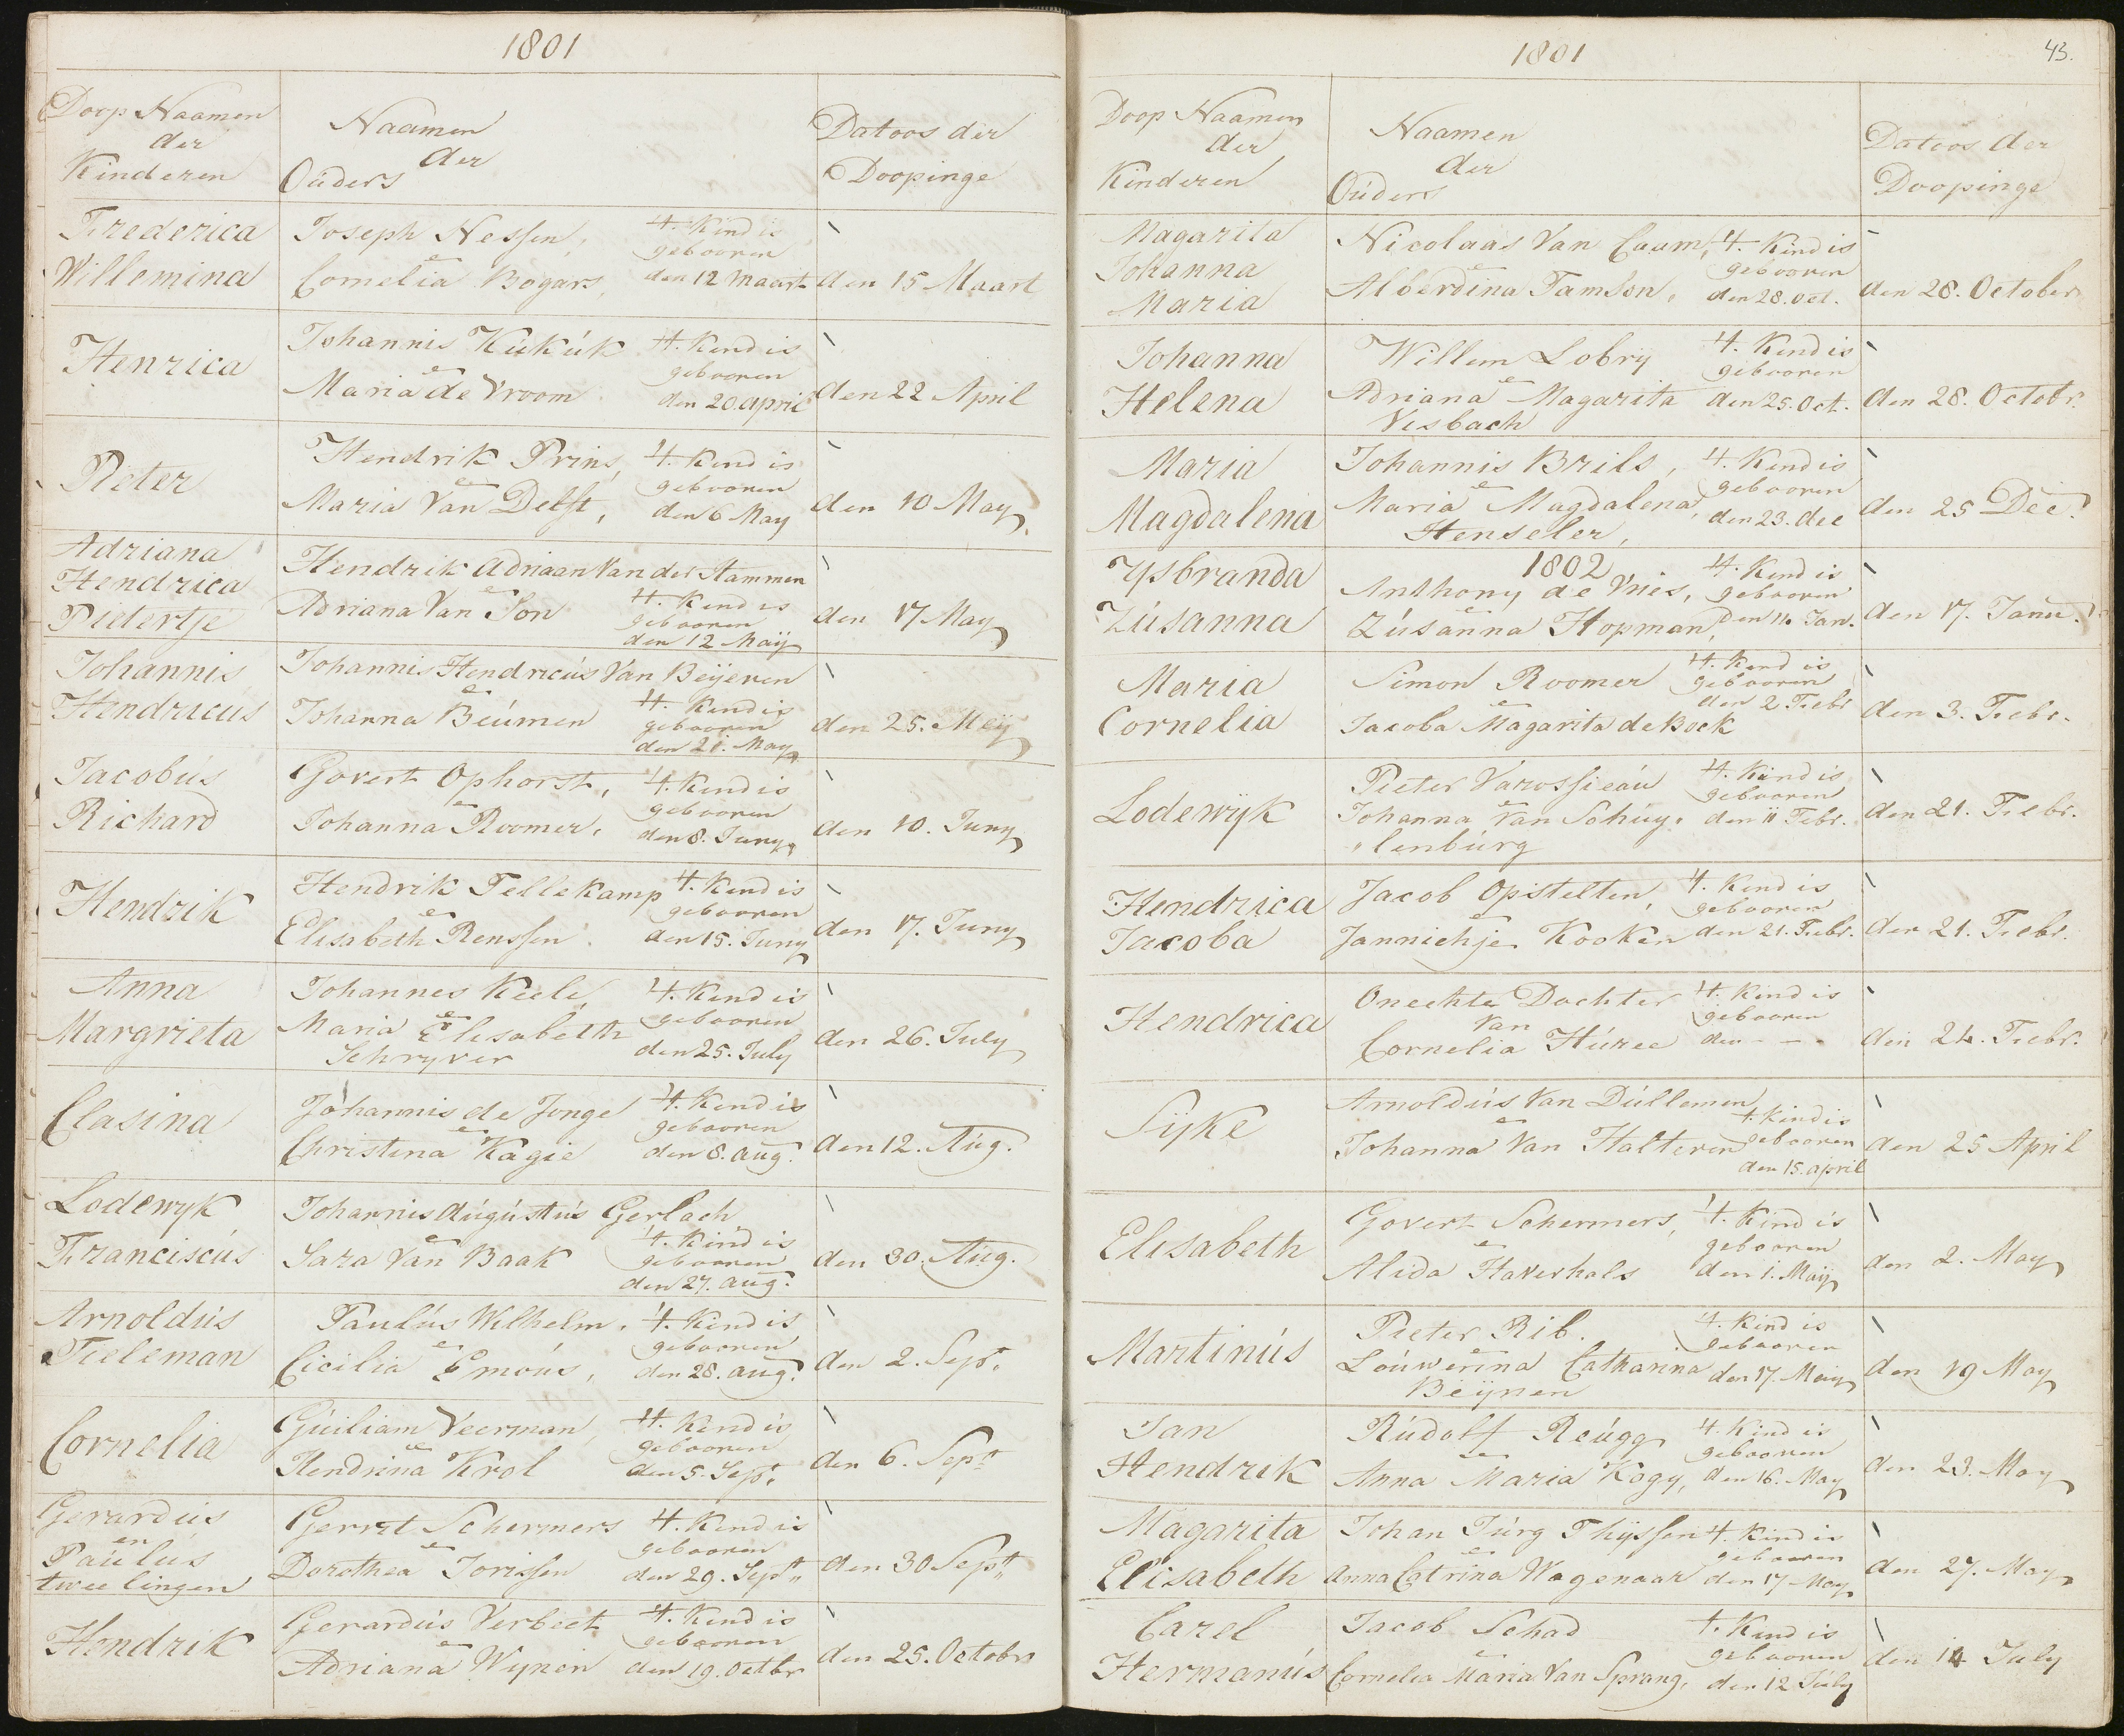 1801
Doop Naamen
der
Kinderen
Naamen
der
Ouders
Datoos der
Doopinge
Frederica
Willemina
Joseph Nessen,
en
Cornelia Bogars,
't Kind is
gebooren
den 12 Maart
den 15 Maart
Henrica
Johannis Kúkúk
en
Maria de Vroom
't Kind is
gebooren
den 20 april
den 22 April
Pieter
Hendrik Prins,
en
Maria Van Delft,
't Kind is
gebooren
den 6 May
den 10 May
Adriana
Hendrica
Pietertje
Hendrik Adriaan Van der Stammen
en
Adriana Van Son
't Kind is
gebooren
den 12 Maÿ
den 17 May
Johannis
Hendricús
Johannis Hendricús Van Beÿeren
en
Johanna Beúmen
't Kind is
gebooren
den 21. May
den 25. Meÿ
Jacobús
Richard
Govert Ophorst,
en
Johanna Roomer,
't Kind is
gebooren
den 8. Juny
den 10. Juny
Hendrik
Hendrik Tellekamp
en
Elisabeth Renssen
't Kind is
gebooren
den 15. Juny
den 17. Juny
Anna
Margrieta
Johannes Keele,
en
Maria Elisabeth
Schryver
't Kind is
gebooren
den 25. July
den 26. July
Clasina
Johannis de Jonge
en
Christina Kagie
't Kind is
gebooren
den 8. aug.
den 12. Aúg.
Lodewyk
Franciscús
Johannis Aúgústús Gerlach
en
Sara Van Baak
't Kind is
gebooren
den 27. aug.
den 30. Aúg.
Arnoldús
Tieleman
Paulús Wilhelm,
en
Cicilia Emoús,
't Kind is
gebooren
den 28. aug.
den 2. Sept.
Cornelia
Gúiliam Veerman,
en
Hendrina Krol
't Kind is
gebooren
den 5. Sept.
den 6. Sept
Gerardús
en
Paúlús
tweelingen
Gerrit Schermers
en
Dorothea Jorissen
't Kind is
gebooren
den 29. Sept
den 30 Sept
Hendrik
Gerardús Verbeet
en
Adriana Wynen
't Kind is
gebooren
den 19. Octbr
den 25. Octobr
1801
43.
Doop Naamen
der
Kinderen
Naamen
der
Oúders
Datoos der
Doopinge
Magarita
Johanna
Maria
Nicolaas Van Caam,
en
Alberdina Tamson,
't Kind is
gebooren
den 28. oct.
den 28. October
Johanna
Helena
Willem Lobrÿ
en
Adriana Magarita
Visbach
't Kind is
gebooren
den 25. Oct.
den 28. Octobr.
Maria
Magdalena
Johannis Brils,
en
Maria Magdalena
Henseler,
't Kind is
gebooren
den 23. dec
den 25 Dec.
1802
Ysbranda
Zúsanna
Anthony de Vries,
en
Zúsanna Hopman,
't Kind is
gebooren
den 11. Jan.
den 17. Janu.
Maria
Cornelia
Simon Roomer
en
Jacoba Magarita de Bock
't Kind is
gebooren
den 2 Febr
den 3. Febr.
Lodewÿk
Pieter Varossieaú
en
Johanna Van Schúy,
lenbúrg
't Kind is
gebooren
den 11 Febr.
den 21. Febr.
Hendrica
Jacoba
Jacob Opstelten,
en
Jannichje Kooken
't Kind is
gebooren
den 21. Febr.
den 21. Febr.
Hendrica
Onechte Dochter
Van
Cornelia Húree
't Kind is
gebooren
den - - -
den 24. Febr.
Sÿke
Arnoldús Van Dúllemen
en
Johanna Van Halteren
't Kind is
gebooren
den 15. april
den 25 April
Elisabeth
Govert Schermers,
en
Alida Haverhals
't Kind is
gebooren
den 1. Maÿ
den 2. May
Martinús
Pieter Rib.
en
Loúwerina Catharina
Beÿnen
't Kind is
gebooren
den 17. May
den 19 May
Jan
Hendrik
Rúdolf Reúgg
en
Anna Maria Kogy,
't Kind is
gebooren
den 16. May
den 23. May
Magarita
Elisabeth
Johan Júrg Thÿssen
en
Anna Catrina Wagenaar
't Kind is
gebooren
den 17 May
den 27. May
Carel
Hermanús
Jacob Schad
en
Cornelia Maria Van Sprang,
't Kind is
gebooren
den 12 Júly
den 14 July